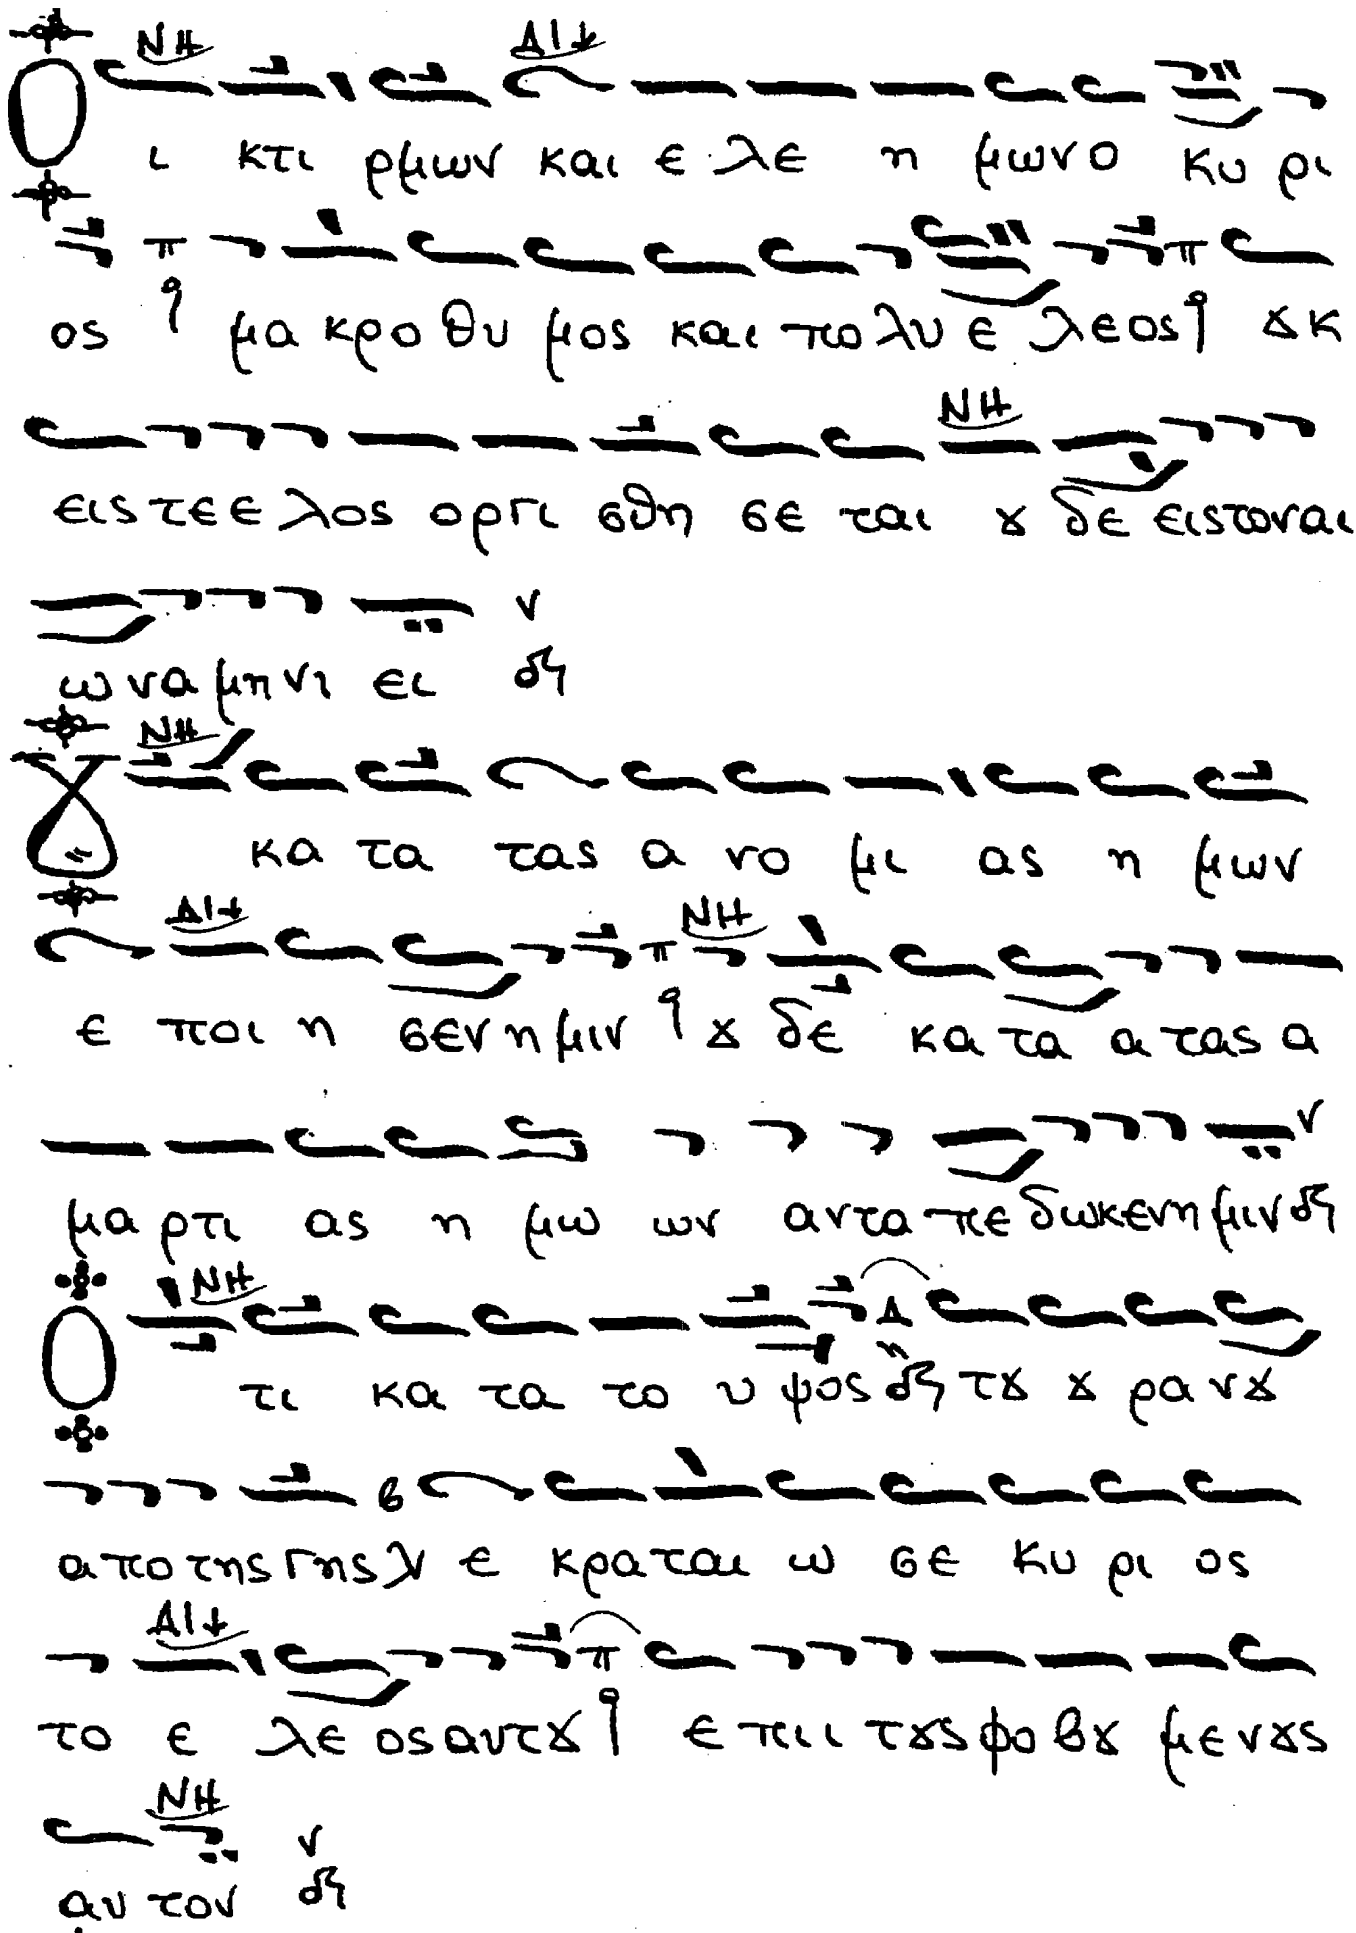 ΝΗ ΔΙ↓
Ο ι κτι ρμων και ε λε η μων ο κυ ρι
ος π ꟼ μα κρο θυ μος και πο λυ ε λεος π ꟼ ȣκ
ΝΗ
εις τε ε λος οργι σθη σε ται ȣ δε εις τον αι
ω να μη νι ει ν
ΝΗ
Ȣ κα τα τας α νο μι ας η μων
ΔΙ↓ π ΝΗ
ε ποι η σεν ημιν ȣ δε κα τα α τας α
μα ρτι ας η μω ων αντα πε δωκεν η μιν ν
ΝΗ Δ
Ο τι κα τα το υ ψος τȣ ȣ ρα νȣ
απο της γης β ε κρα ται ω σε κυ ρι ος
ΔΙ↓ π
το ε λε ος αυτȣ ε πι ι τȣς φο βȣ με νȣς
ΝΗ
αυ τον ν